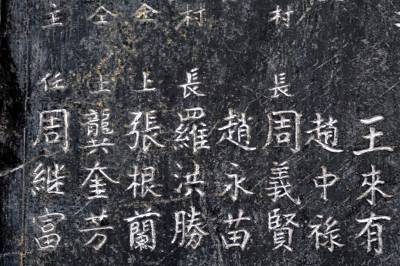 王來有
趙中祿
村長周義賢
趙永苗
村長羅洪勝
仝上張根蘭
仝上龔奎芳
主任周継富